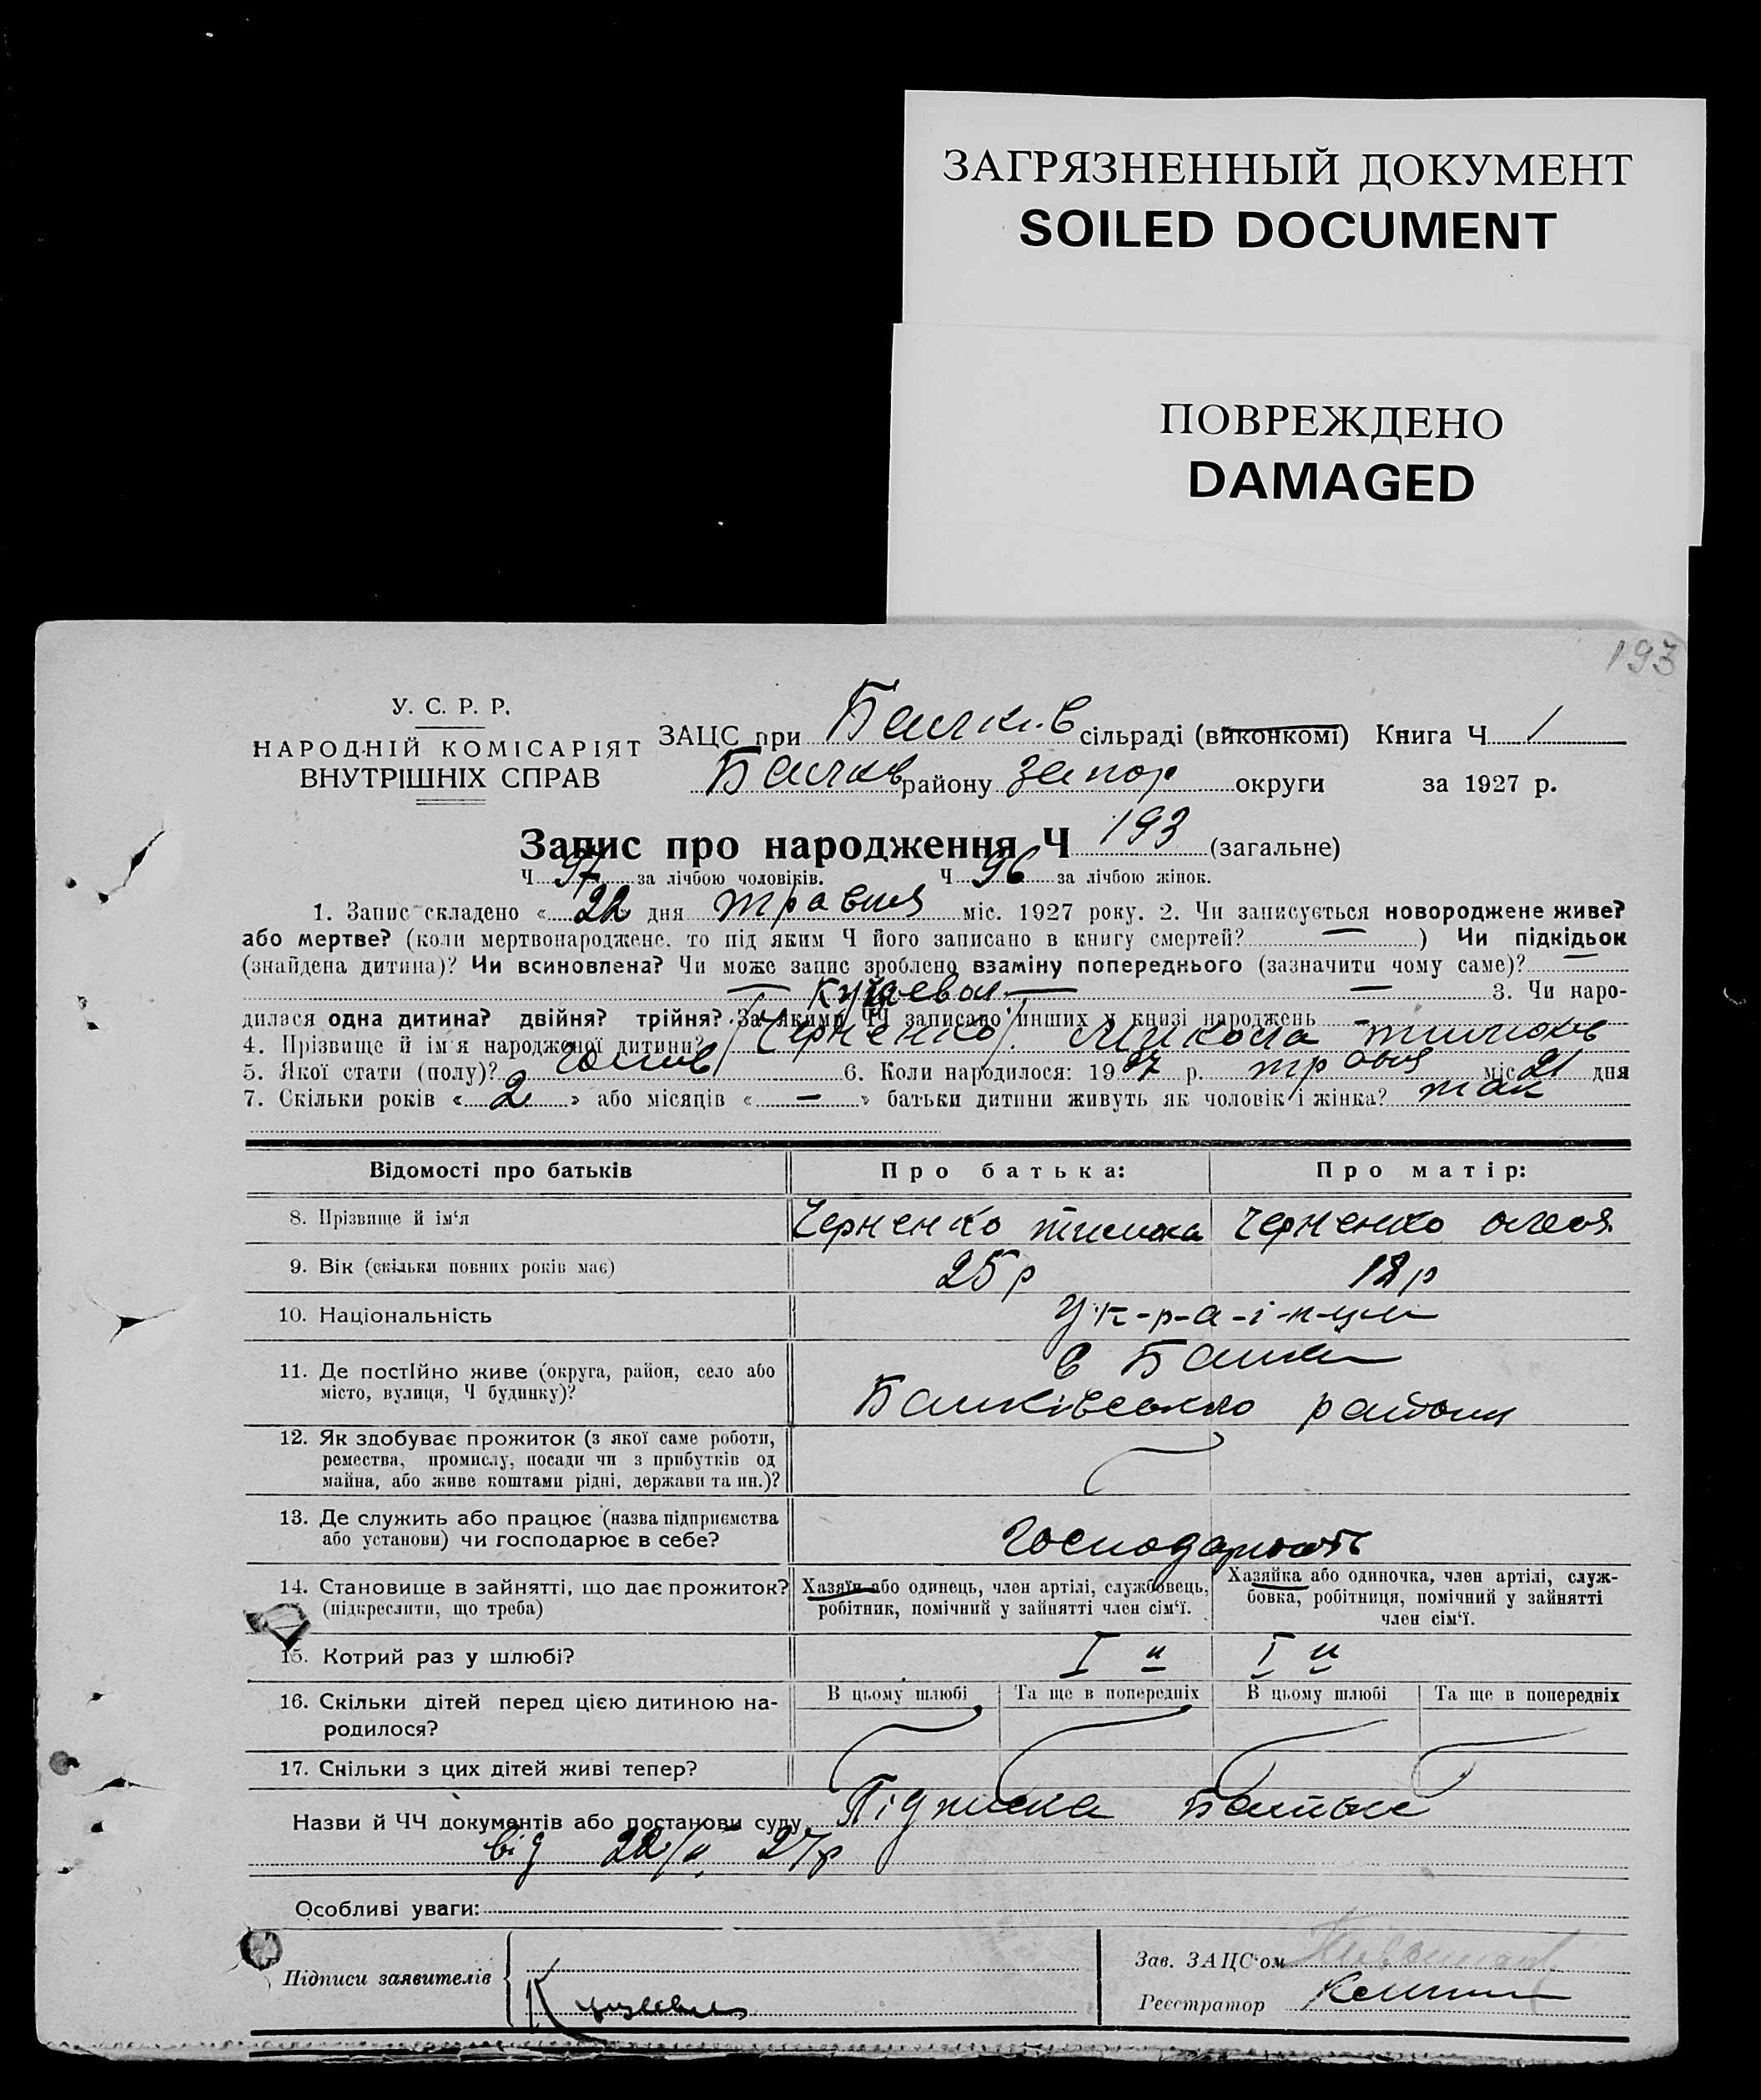 ЗАГРЯЗНЕННЫЙ ДОКУМЕНТ
SOILED DOCUMENT
ПОВРЕЖДЕНО
DAMAGED
193
У. С. Р. Р.
НАРОДНІЙ КОМІСАРІЯТ
ВНУТРІШНІХ СПРАВ
ЗАЦС при Балків сільраді (виконкомі) Книга Ч 1
Балків району Запор округи за 1927 р.
Запис про народження Ч 193 (загальне)
Ч 97 за лічбою чоловіків. Ч 96 за лічбою жінок.
1. Запис складено « 22 дня травня міс. 1927 року. 2. Чи записується новороджене живе?
або мертве? (коли мертвонароджене. то під яким Ч його записано в книгу смертей? — ) Чи підкідьок
(знайдена дитина)? Чи всиновлена? Чи може запис зроблено взаміну попереднього (зазначити чому саме)? —
— — — 3. Чи наро-
дилася одна дитина? двійня? трійня? За якими ЧЧ записано инших у книзі народжень —
4. Прізвище й ім'я народженої дитини? Черненко Микола
5. Якої стати (полу)? 6. Коли народилося: 1927 р. травня міс. 21 дня
7. Скільки років « 2 » або місяців « — » батьки дитини живуть як чоловік і жінка? так
Відомості про батьків Про батька: Про матір:
8. Прізвище й ім‘я Черненко Черненко
9. Вік (скільки повних років має) 25 р 18 р
10. Національність Ук-р-а-ї-нци
11. Де постійно живе (округа, район, село або
місто, вулиця, Ч будинку)?
в Балки
Балківського району
12. Як здобуває прожиток (з якої саме роботи,
ремества, промислу, посади чи з прибутків од
майна, або живе коштами рідні, держави та ин.)?
13. Де служить або працює (назва підприємства
або установи) чи господарює в себе?
господарюють
14. Становище в зайнятті, що дає прожиток?
(підкреслити, що треба)
Хазяїн або одинець, член артілі, службовець,
робітник, помічний у зайнятті член сім‘ї.
Хазяйка або одиночка, член артілі, служ-
бовка, робітниця, помічний у зайнятті
член сім‘ї.
15. Котрий раз у шлюбі? I й I й
16. Скільки дітей перед цією дитиною на-
родилося?
В цьому шлюбі Та ще в попередніх В цьому шлюбі Та ще в попередніх
17. Скільки з цих дітей живі тепер?
Назви й ЧЧ документів або постанови суду Підписка батька
від 22/V 27р
Особливі уваги:
Підписи заявителів
Зав. ЗАЦС‘ом
Реєстратор